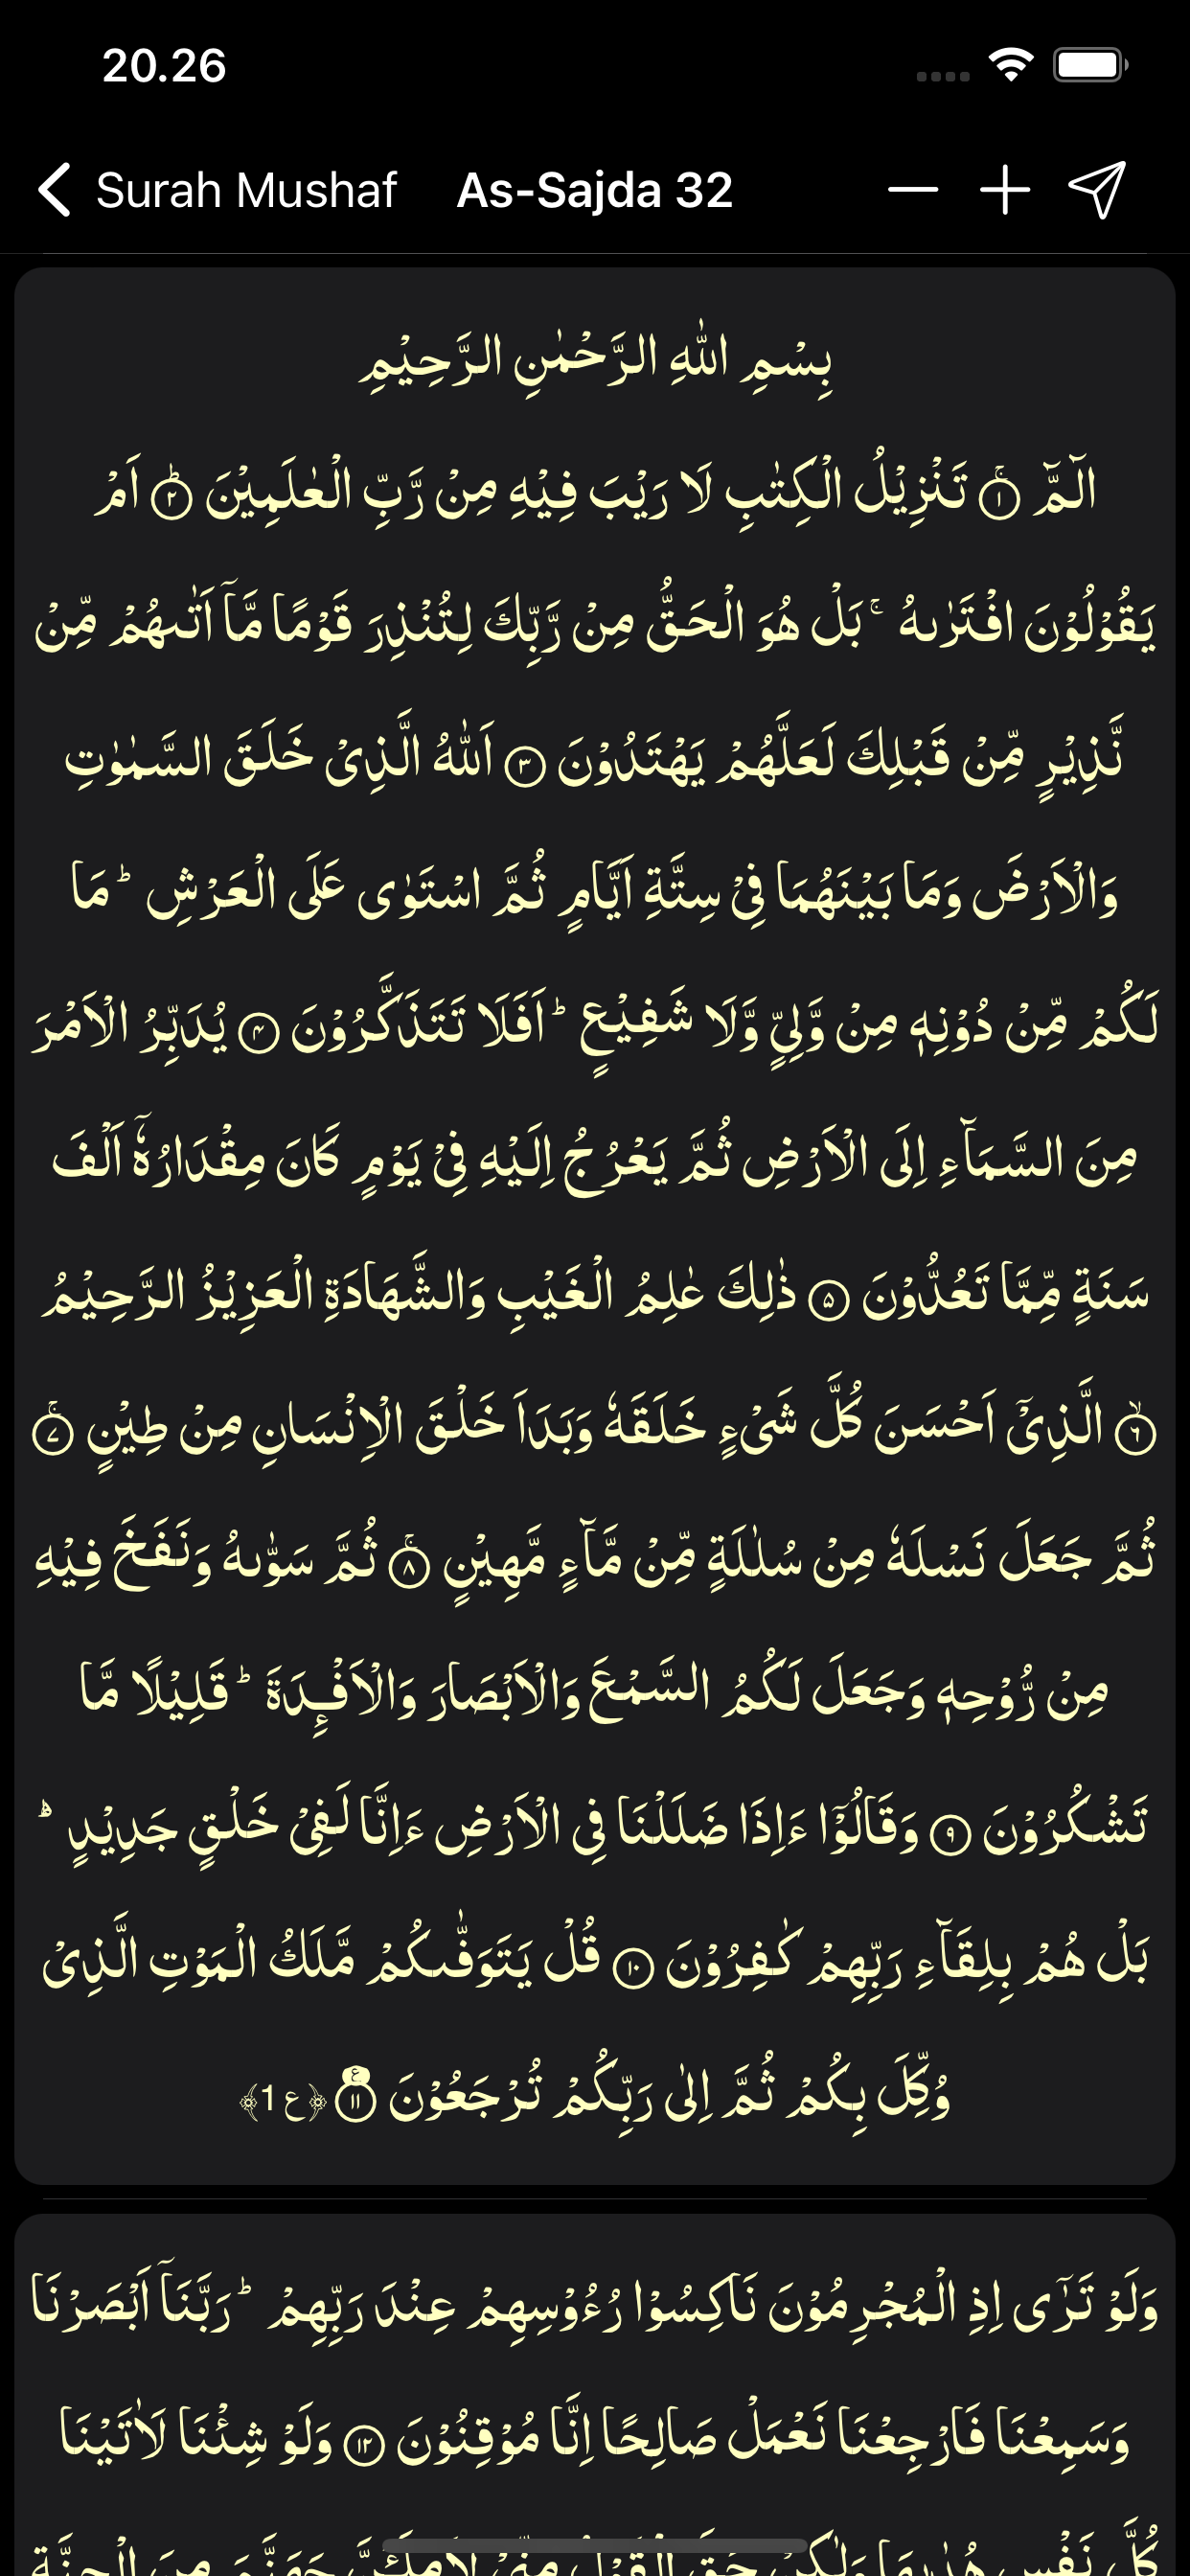 20.26
Surah Mushaf As-Sajda 32
بِسْمِ اللّٰهِ الرَّحْمٰنِ الرَّحِيْمِ
الٓمّٓ ۚ﴿۱﴾ تَنْزِيْلُ الْكِتٰبِ لَا رَيْبَ فِيْهِ مِنْ رَّبِّ الْعٰلَمِيْنَ ؕ﴿۲﴾ اَمْ
يَقُوْلُوْنَ افْتَرٰىهُ ۚ بَلْ هُوَ الْحَقُّ مِنْ رَّبِّكَ لِتُنْذِرَ قَوْمًا مَّاۤ اَتٰىهُمْ مِّنْ
نَّذِيْرٍ مِّنْ قَبْلِكَ لَعَلَّهُمْ يَهْتَدُوْنَ ﴿۳﴾ اَللّٰهُ الَّذِىْ خَلَقَ السَّمٰوٰتِ
وَالْاَرْضَ وَمَا بَيْنَهُمَا فِىْ سِتَّةِ اَيَّامٍ ثُمَّ اسْتَوٰى عَلَى الْعَرْشِ ؕ مَا
لَكُمْ مِّنْ دُوْنِهٖ مِنْ وَّلِىٍّ وَّلَا شَفِيْعٍ ؕ اَفَلَا تَتَذَكَّرُوْنَ ﴿۴﴾ يُدَبِّرُ الْاَمْرَ
مِنَ السَّمَآءِ اِلَى الْاَرْضِ ثُمَّ يَعْرُجُ اِلَيْهِ فِىْ يَوْمٍ كَانَ مِقْدَارُهٗۤ اَلْفَ
سَنَةٍ مِّمَّا تَعُدُّوْنَ ﴿۵﴾ ذٰلِكَ عٰلِمُ الْغَيْبِ وَالشَّهَادَةِ الْعَزِيْزُ الرَّحِيْمُ
ۙ﴿۶﴾ الَّذِىْۤ اَحْسَنَ كُلَّ شَىْءٍ خَلَقَهٗ وَبَدَاَ خَلْقَ الْاِنْسَانِ مِنْ طِيْنٍ ۚ﴿۷﴾
ثُمَّ جَعَلَ نَسْلَهٗ مِنْ سُلٰلَةٍ مِّنْ مَّآءٍ مَّهِيْنٍ ۚ﴿۸﴾ ثُمَّ سَوّٰىهُ وَنَفَخَ فِيْهِ
مِنْ رُّوْحِهٖ وَجَعَلَ لَكُمُ السَّمْعَ وَالْاَبْصَارَ وَالْاَفْـِٕدَةَ ؕ قَلِيْلًا مَّا
تَشْكُرُوْنَ ﴿۹﴾ وَقَالُوْۤا ءَاِذَا ضَلَلْنَا فِى الْاَرْضِ ءَاِنَّا لَفِىْ خَلْقٍ جَدِيْدٍ ؕ
بَلْ هُمْ بِلِقَآءِ رَبِّهِمْ كٰفِرُوْنَ ﴿۱۰﴾ قُلْ يَتَوَفّٰىكُمْ مَّلَكُ الْمَوْتِ الَّذِىْ
وُكِّلَ بِكُمْ ثُمَّ اِلٰى رَبِّكُمْ تُرْجَعُوْنَ ﴿۱۱﴾ ﴿ع 1﴾
وَلَوْ تَرٰٓى اِذِ الْمُجْرِمُوْنَ نَاكِسُوْا رُءُوْسِهِمْ عِنْدَ رَبِّهِمْ ؕ رَبَّنَاۤ اَبْصَرْنَا
وَسَمِعْنَا فَارْجِعْنَا نَعْمَلْ صَالِحًا اِنَّا مُوْقِنُوْنَ ﴿۱۲﴾ وَلَوْ شِئْنَا لَاٰتَيْنَا
كُلَّ نَفْسٍ